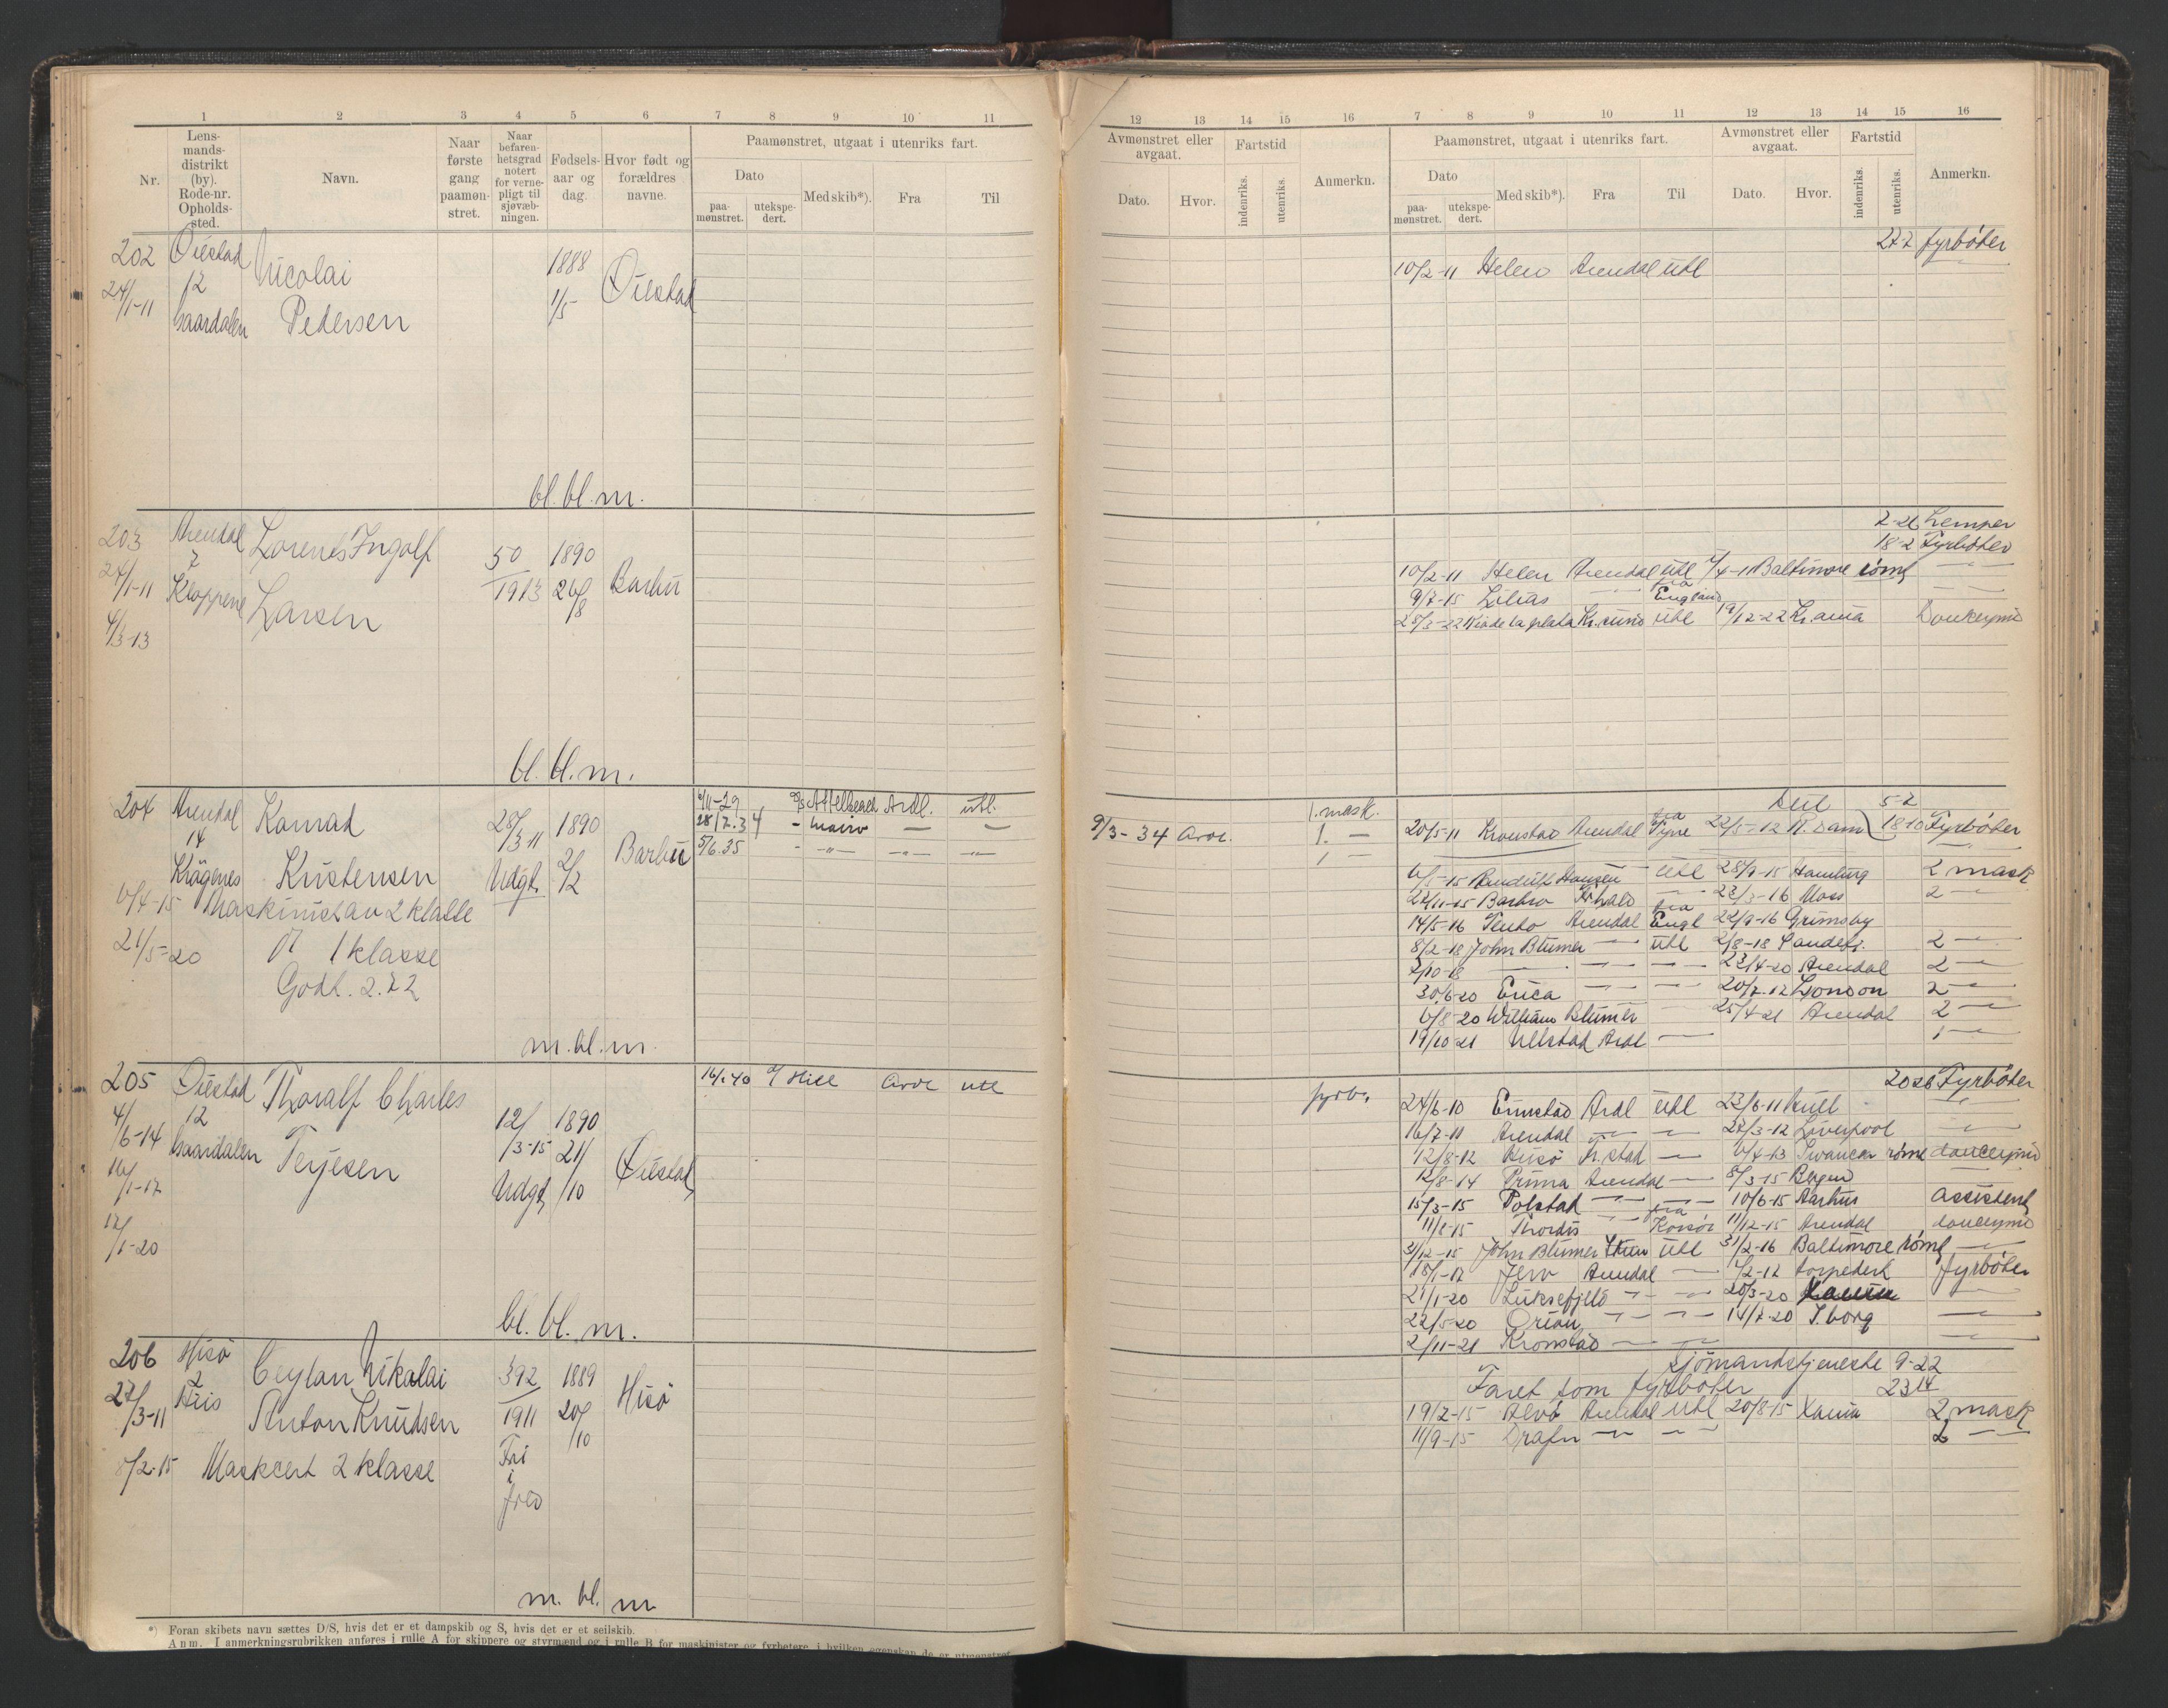 1 2 3 4 5 6 7 8 9 10 11
Nr.
Lens-
mands-
distrikt
(by).
Rode-nr.
Opholds-
sted.
Navn.
Naar
første
gang
paamøn-
stret.
Naar
befaren-
hetsgrad
notert
for verne-
pligt til
sjøvæb-
ningen.
Fødsels-
aar og
dag.
Hvor født og
forældres
navne.
Paamønstret, utgaat i utenriks fart.
Dato
paa-
mønstret.
utekspe-
dert.
Med skib*).
Fra
Til
202 Øiestad Nicolai 1888 Øiestad
24/1-11 12 Pedersen 1/5
bl. bl. m.
203 Arendal Lorents Ingolf 50 1890 Barbu
24/1-11 7 Larsen 1913 26/8
4/3-13 Kloppene
bl. bl. m.
204 Arendal Konrad 28/3 11 1890 Barbu
14 Kristensen Udgt. 2/2
Krågenes
6/4-15 Maskinist av 2 klasse
21/5-20 1 klasse
Godt. 2.72
28/7.34 Ardl. utl.
5/6.35
m. bl. m.
205 Øiestad Thoralf Charles 12/3-15 1890 Øiestad
4/6-14 12 Terjesen Udgt. 21/10
16/1-17
12/1-20
Hill utl
bl. bl. m.
206 Hisö Ceylan Nikolai 392 1889 Hisö
27/3-11 2 Anton Knudsen 1911 20/10
His Fri
i
fred
8/2-15 Maskcert 2 klasse
m. bl. m
*) Foran skibets navn sættes D/S, hvis det er et dampskib og S, hvis det er et seilskib.
Anm. I anmerkningsrubrikken anføres i rulle A for skippere og styrmænd og i rulle B for maskinister og fyrbøtere, i hvilken egenskap de er utmønstret
12 13 14 15 16 7 8 9 10 11 12 13 14 15 16
Avmønstret eller
avgaat.
Dato.
Hvor.
Fartstid
indenriks.
utenriks.
Anmerkn.
Paamønstret, utgaat i utenriks fart.
Dato
paa-
mønstret.
utekspe-
dert.
Med skib*).
Fra
Til
Avmønstret eller
avgaat.
Dato.
Hvor.
Fartstid
indenriks.
utenriks.
Anmerkn.
27-7 fyrböter
10/2-11 Helen Arendal utl
2-26 Lemper
18-2 Fyrböter
10/2-11 Helen Arendal utl 7/4-11 Baltimore römt
9/7-15 Lilias fra England
28/3-22 Rio de la plata Kr.sund utl 19/12-22 Kr.ania Donkeymd
5-2
9/3-34 1. mask.
20/5-11 Kronstad Arendal fra Tyne 22/5-12 R.dam 18-10 Fyrböter
6/5-15 Hansen utl 28/9-15 Hamburg 2 mask
22/11-15 Barbro Fr.hald 23/3-16 Moss 2
14/5-16 Tento Arendal fra Engl 22/9-16 Grimsby
8/2-18 John Blumer utl 2/8-18 Sandefj. 2
7/10-18 23/4-20 Arendal 2
30/6-20 Erica London 2
6/8-20 William Blumer 25/4-21 Arendal 2
19/10-21 Ulstad Ardl 1
fyrb. 2026 Fyrböter
24/6-10 Einstad Ardl utl 23/6-11 Hull
16/7-11 Arendal 22/3-12 Liverpool
12/8-12 Hisö Fr.stad 6/4-13 Swansea römt donceymd
12/8-14 Prima Arendal 8/3-15 Bergen
15/3-15 Polstad 10/6-15 Aarhus Assistent
11/8-15 Thordis fra Korsör 11/12-15 Arendal donceymd
31/12-15 John Blumer utl 31/2-16 Baltimore römt
18/1-17 Jerv Arendal torpedert fyrböter
21/1-20 Luksefjeld 20/3-20
22/5-20 Orion 14/7-20 S.borg
2/11-21 Kronstad
Sjömandstjeneste 9-22
Faret som fyrböter 23 14
19/2-15 Alvö Arendal utl 20/8-15 Xania 2 mask
11/9-15 Drafn 2